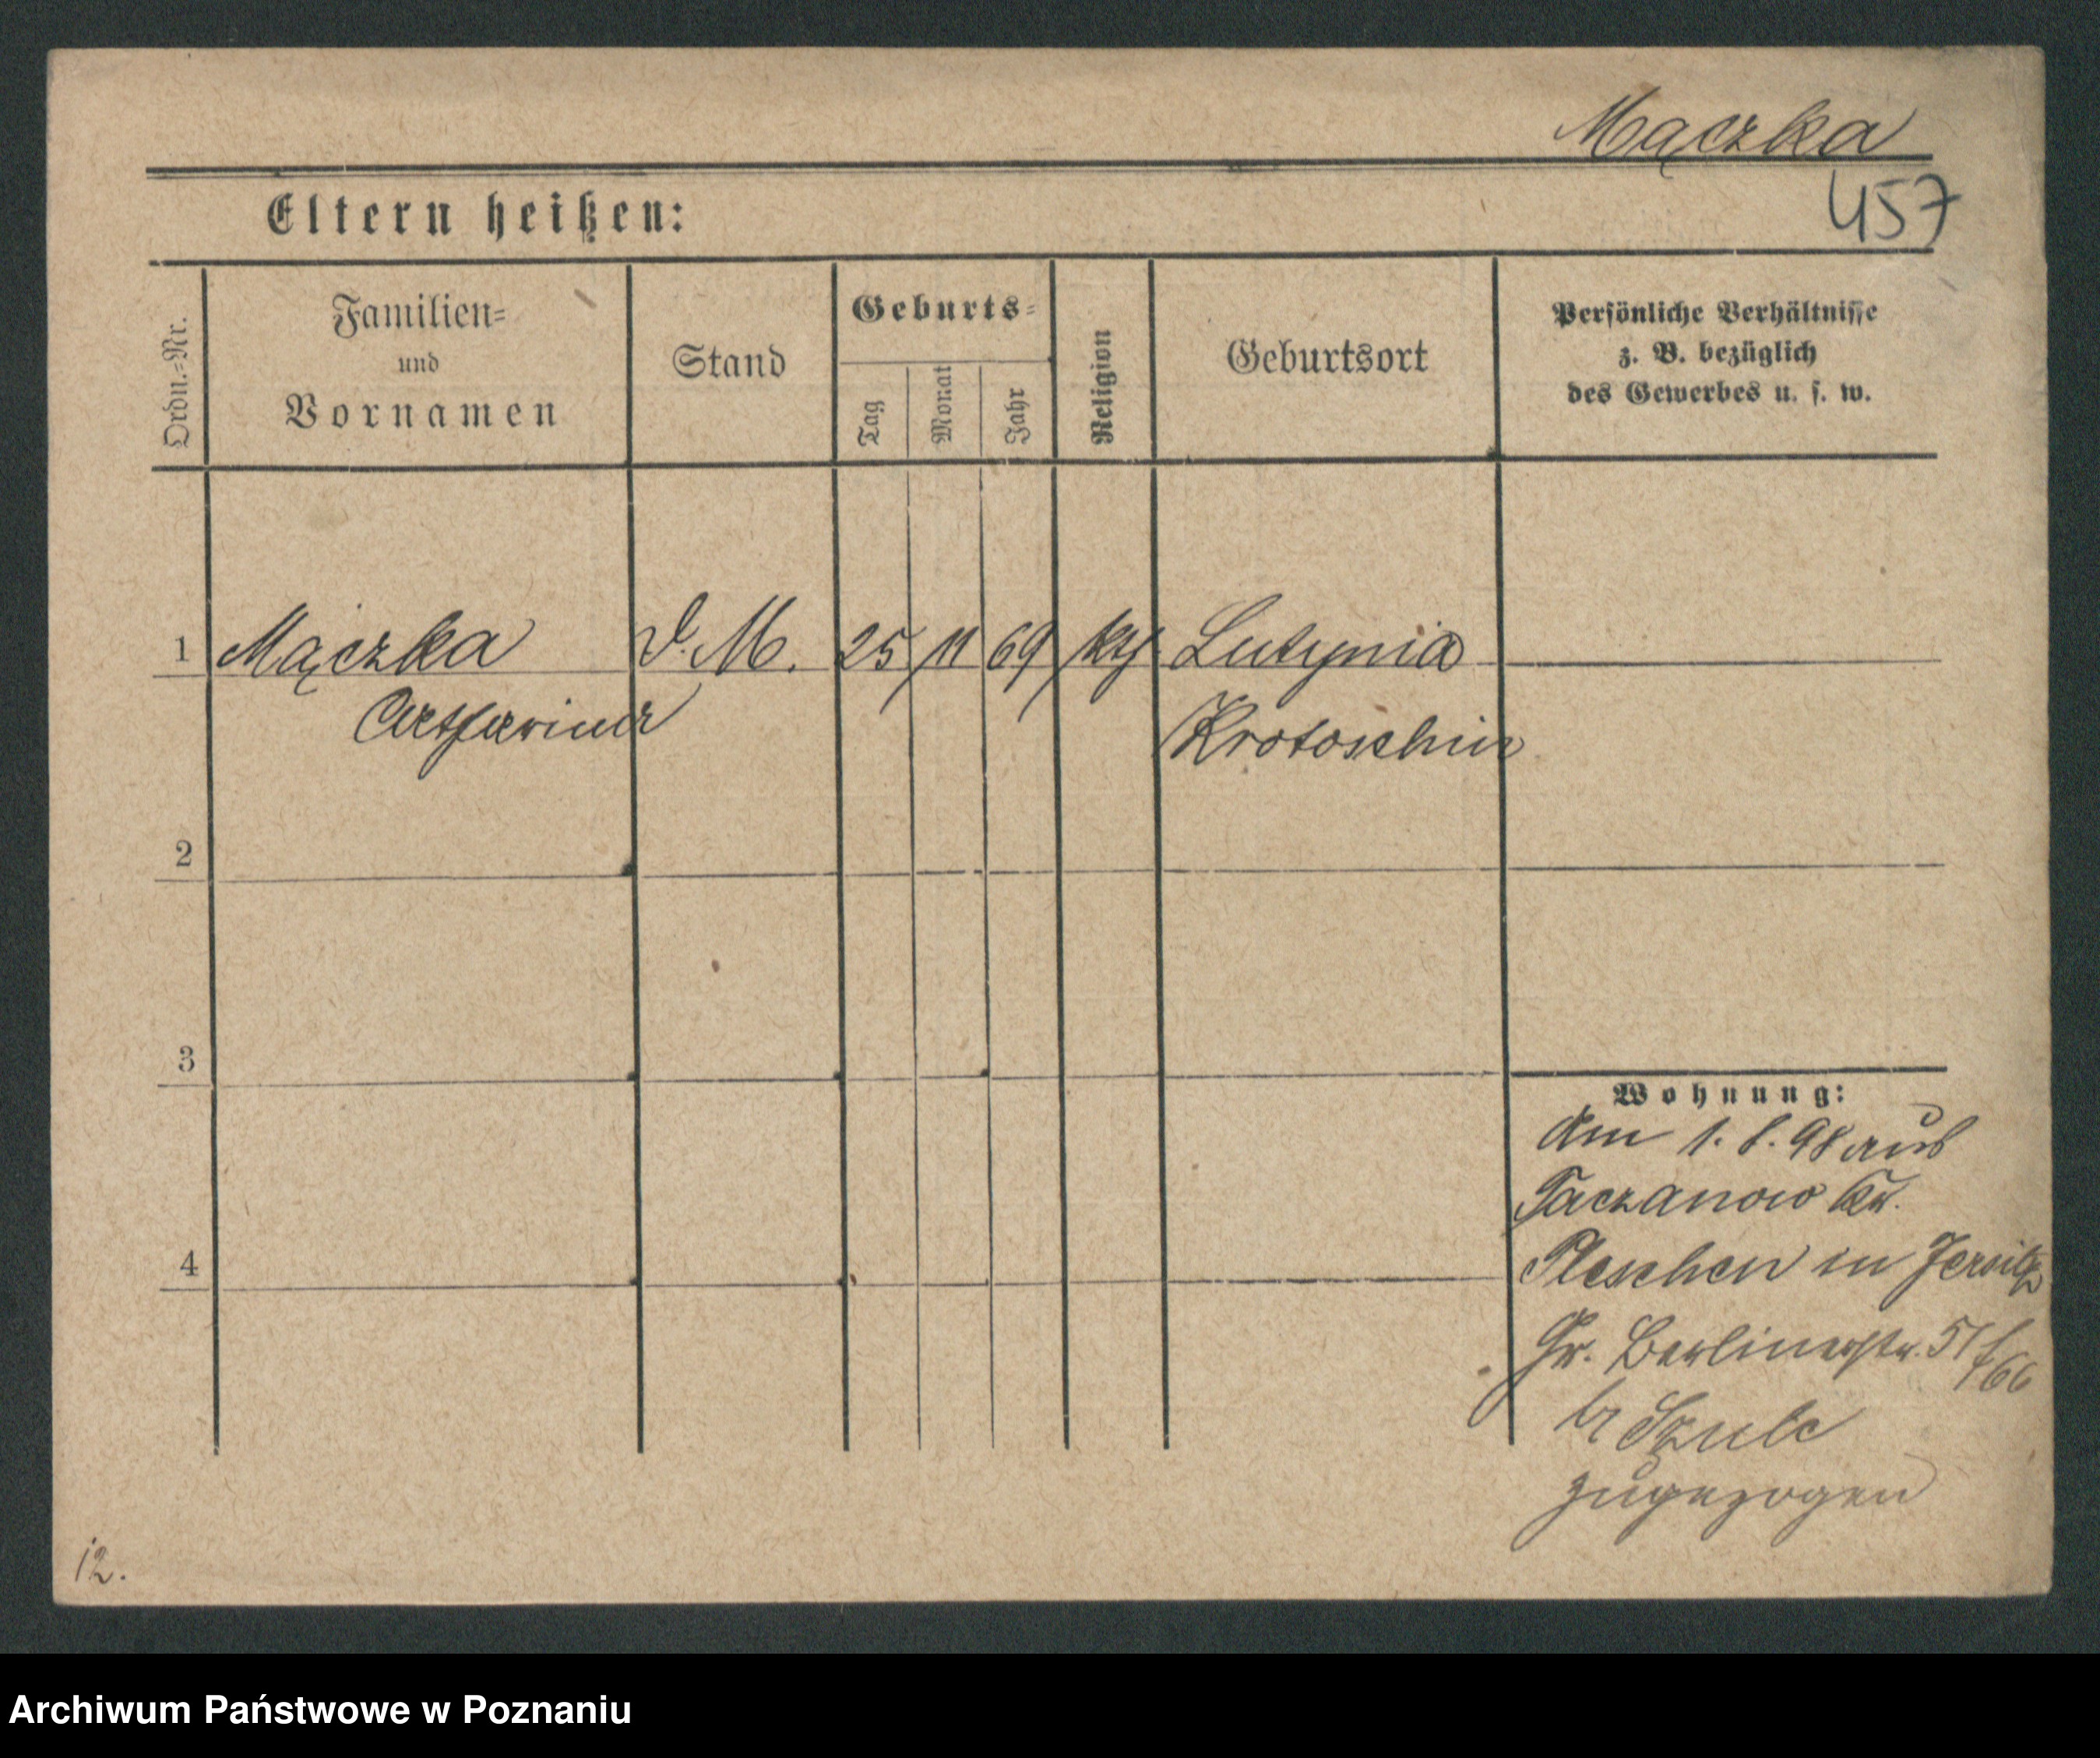 Mączka
457
Eltern heißen:
Ordn.-Nr.
Familien=
und
Vornamen
Stand
Geburts=
Tag
Monat
Jahr
Religion
Geburtsort
Persönliche Verhältnisse
z. B. bezüglich
des Gewerbes u. s. w.
1 Mączka D. M. 25 11 69 kth Lutynia
Catharina Krotoschin
2
3
Wohnung:
Am 1. 8. 98 aus
Taczanow Kr.
4
Pleschen in Jersitz
Gr. Berlinerstr. 51
/66
br Szulc
zugezogen
12.
Archiwum Państwowe w Poznaniu